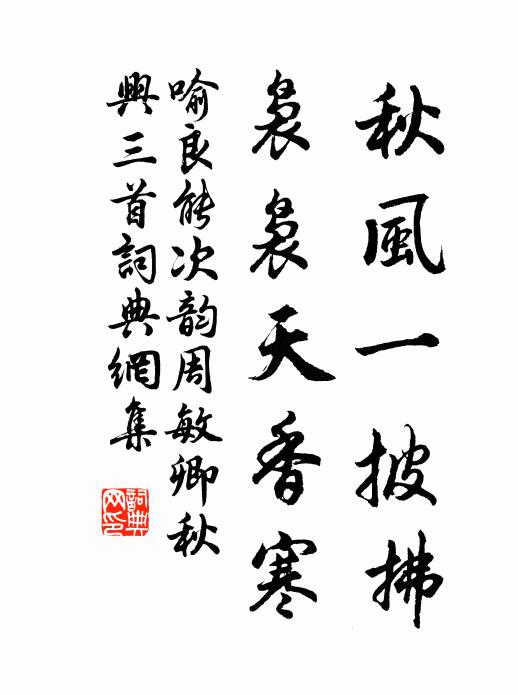 秋風一披拂
裊裊天香寒
喻良能次韵周敏卿秋
興三首詞典網集
詞典网印